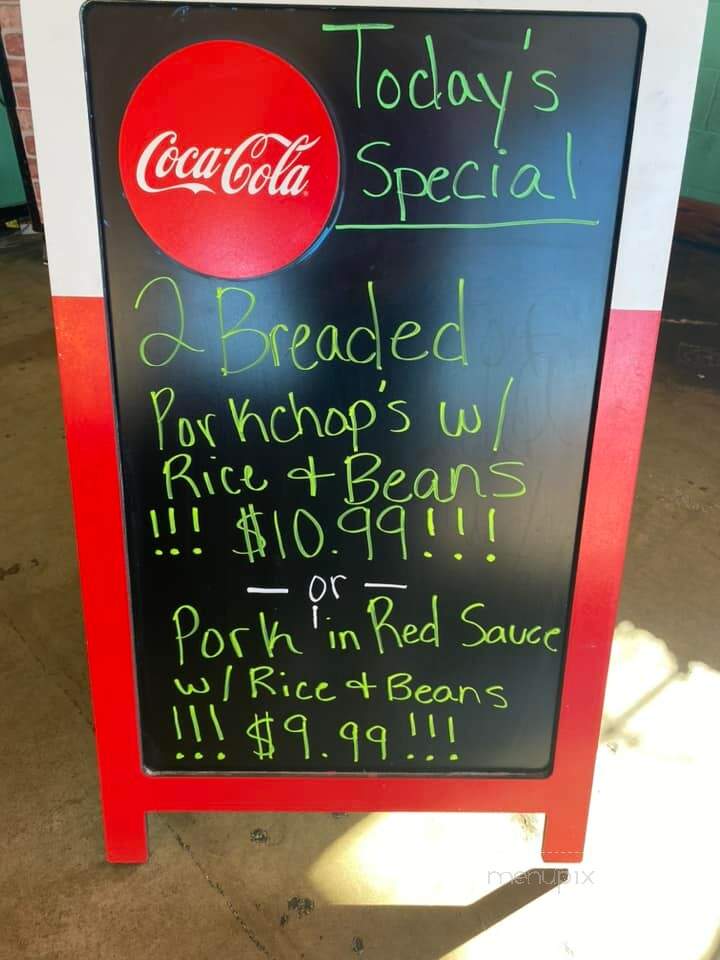 Coca-Cola
Today's
Special
2 Breaded
Porkchop's w/
Rice + Beans
!!! $10.99!!!
— or —
Pork in Red Sauce
w/ Rice + Beans
!!! $9.99 !!!
menupix